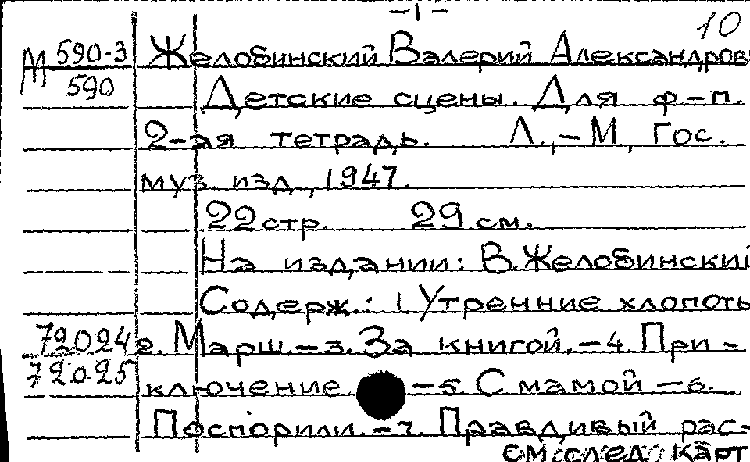 -1-
10
М 590-3 Желобинский Валерий Александров
590 Детские сцены. Для ф-п.
2-ая тетрадь. Л.,-М, Гос.
муз. изд., 1947.
22 стр. 29 см.
На издании: В. Желобинский
Содерж.: 1 Утренние хлопоты
72024 2. Марш.-3. За книгой.-4. При-
72025 ключение. -5 С мамой-6.
Поспорили.-7. Правдивый рас-
см. след. карт